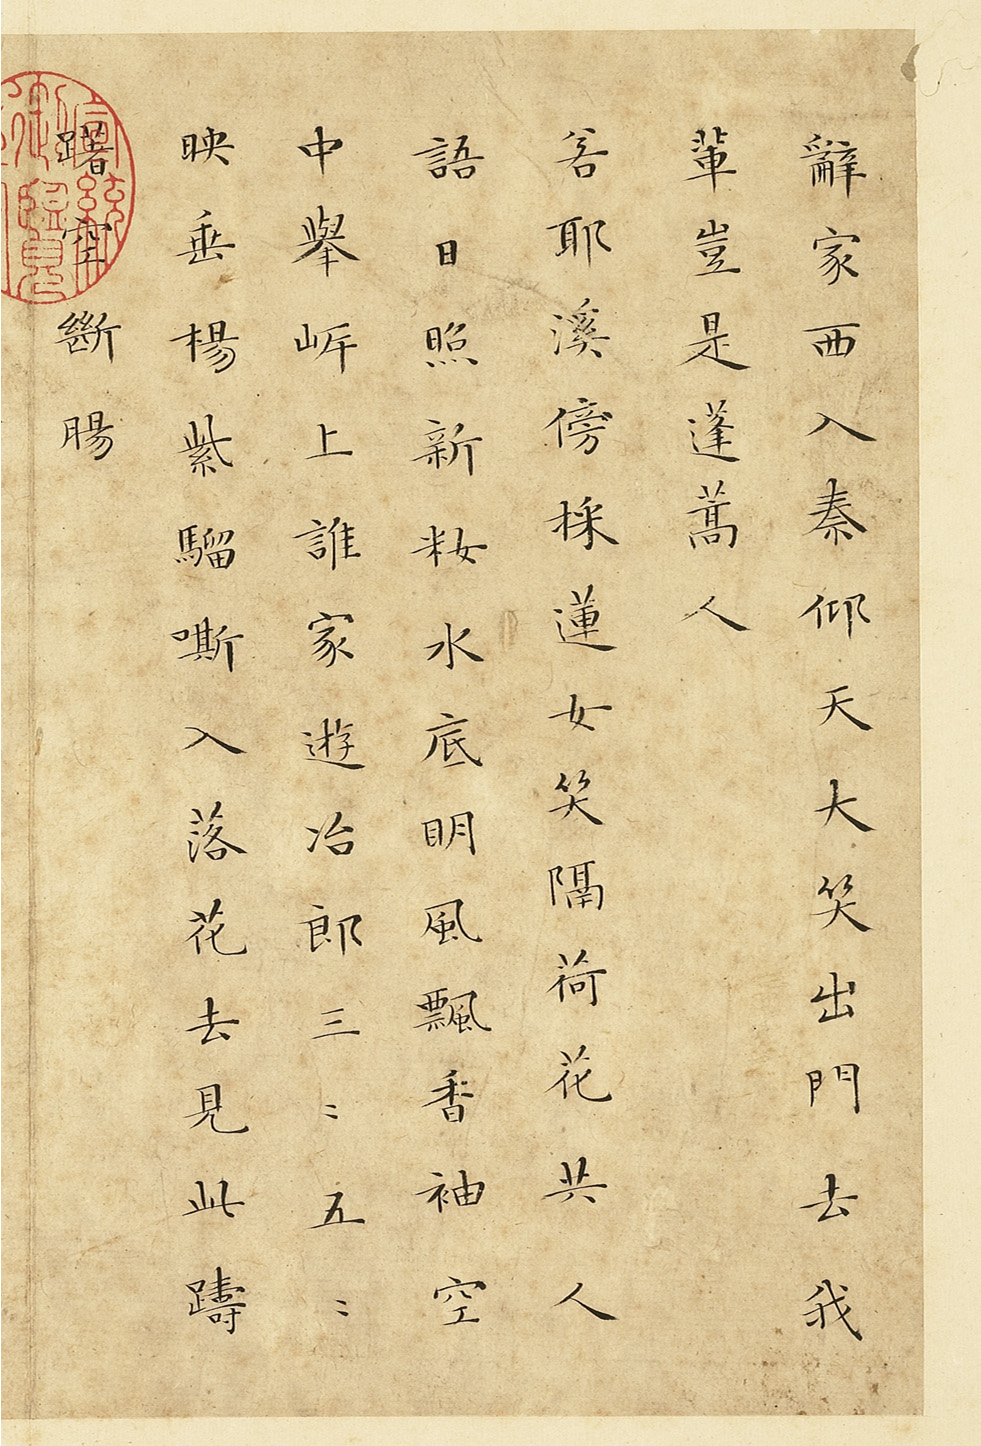 辭家西入秦仰天大笑出門去我
輩豈是蓬蒿人
若耶溪傍採蓮女笑隔荷花共人
語日照新籹水底明風飄香袖空
中舉岸上誰家遊冶郎三〻五〻
映垂楊紫騮嘶入落花去見此躊
躇空斷腸
宣統
御覽